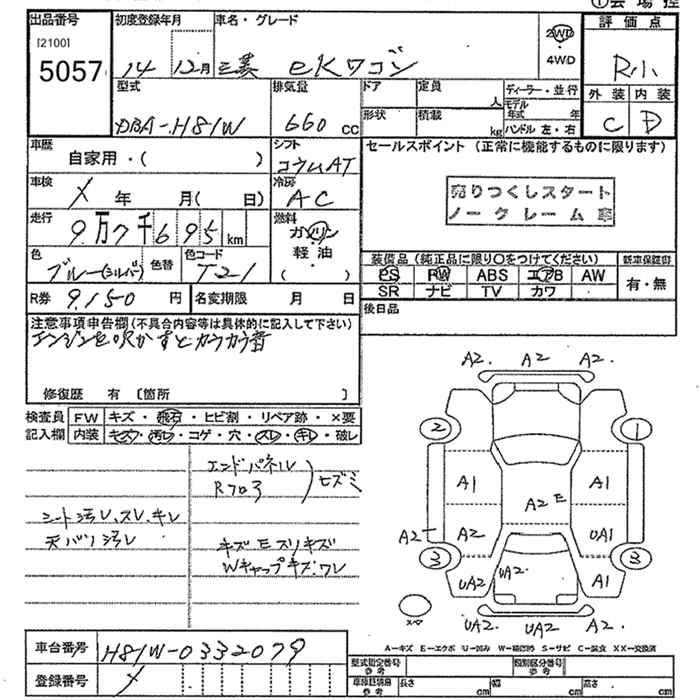 ①会場控
出品番号
[2100]
5057
初度登録年月
14 12月
車名・グレード
三菱 eKワゴン
2WD
・
4WD
評価点
R小
外装 内装
C D
型式
DBA-H81W
排気量
660 cc
ドア
定員
人
形状
積載
kg
ディーラー・並行
モデル年式 年
ハンドル 左・右
車歴
自家用・( )
シフト
コラムAT
車検
× 年 月( 日)
冷房
AC
走行
9万7千695km
燃料
ガソリン
軽油
( )
色
ブルー(シルバー)
色替
色コード
T21
R券 9,150 円
名変期限 月 日
セールスポイント (正常に機能するものに限ります)
売りつくしスタート
ノークレーム車
装備品 (純正品に限り〇をつけてください)
新車保証書
PS PW ABS エアB AW
SR ナビ TV カワ
有・無
後日品
注意事項申告欄(不具合内容等は具体的に記入して下さい)
エンジンを吹かすとカラカラ音
修復歴 有 〔箇所 〕
検査員
記入欄
FW キズ・飛石・ヒビ割・リペア跡・×要
内装 キズ・汚レ・コゲ・穴・スレ・キレ・破レ
エンドパネル
Rフロ3
ヒズミ
シート汚レ、スレ、キレ
天バリ汚レ
キズ E スリキズ
Wキャップキズ、ワレ
A2. A2 A2.
2 1
A1 A1
A2 E
A2 A2 UA1
3 3
UA2 UA2 A1
スペ
UA2. UA2 A2.
A-キズ E-エクボ U-凹み W-補修跡 S-サビ C-腐食 XX-交換済
車台番号 H81W-0332079
登録番号 ×
型式指定番号
参考
類別区分番号
参考
車検証積載用
参考
長さ cm 幅 cm 高さ cm